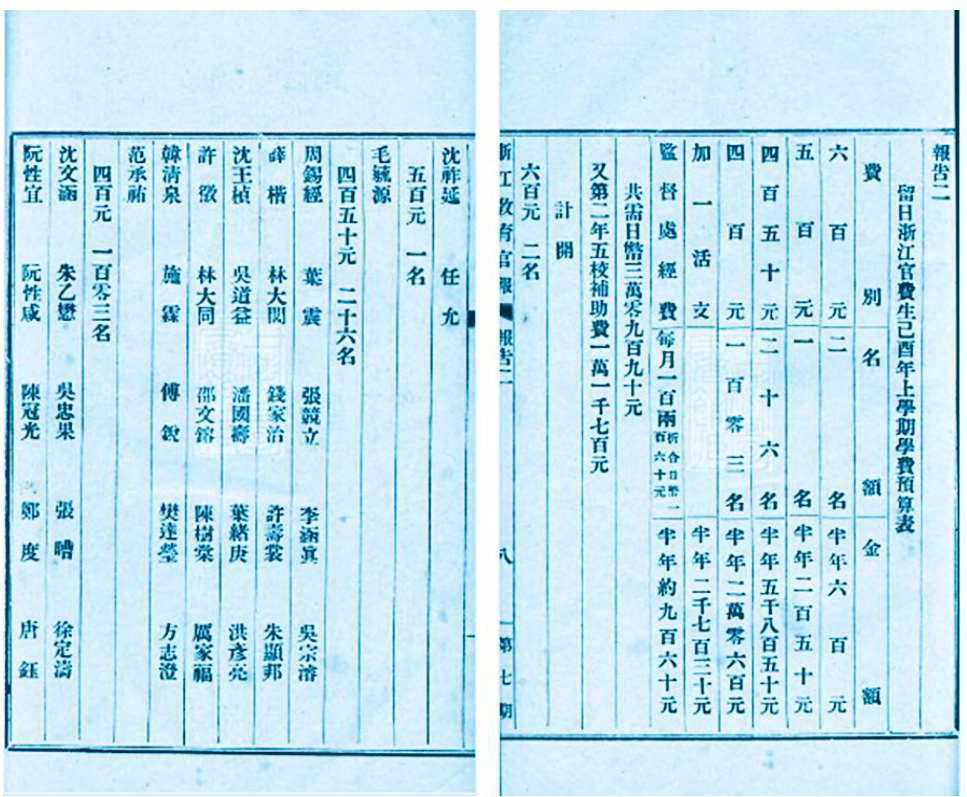 報告二
留日浙江官費生己酉年上學期學費預算表
費別 名額 金額
六百元 二名 半年六百元
五百元 一名 半年二百五十元
四百五十元 二十六名 半年五千八百五十元
四百元 一百零三名 半年二萬零六百元
加一活支 半年二千七百三十元
監督處經費 每月一百兩 折合日幣一百六十元 半年約九百六十元
共需日幣三萬零九百九十元
又第二年五校補助費一萬一千七百元
計開
六百元 二名
浙江教育官報 報告二 八 第七期
沈祚延 任允
五百元 一名
毛毓源
四百五十元 二十六名
周錫經 葉震 張競立 李涵真 吳宗濬
薛楷 林大閭 錢家治 許壽裳 朱顯邦
沈王楨 吳道益 潘國壽 葉緒庚 洪彥亮
許徵 林大同 邵文鎔 陳樹棠 厲家福
韓清泉 施霖 傅銳 樊達瑩 方志澄
范承祐
四百元 一百零三名
沈文涵 朱乙懋 吳忠果 張嘈 徐定濤
阮性宜 阮性咸 陳冠光 鄭度 唐鈺